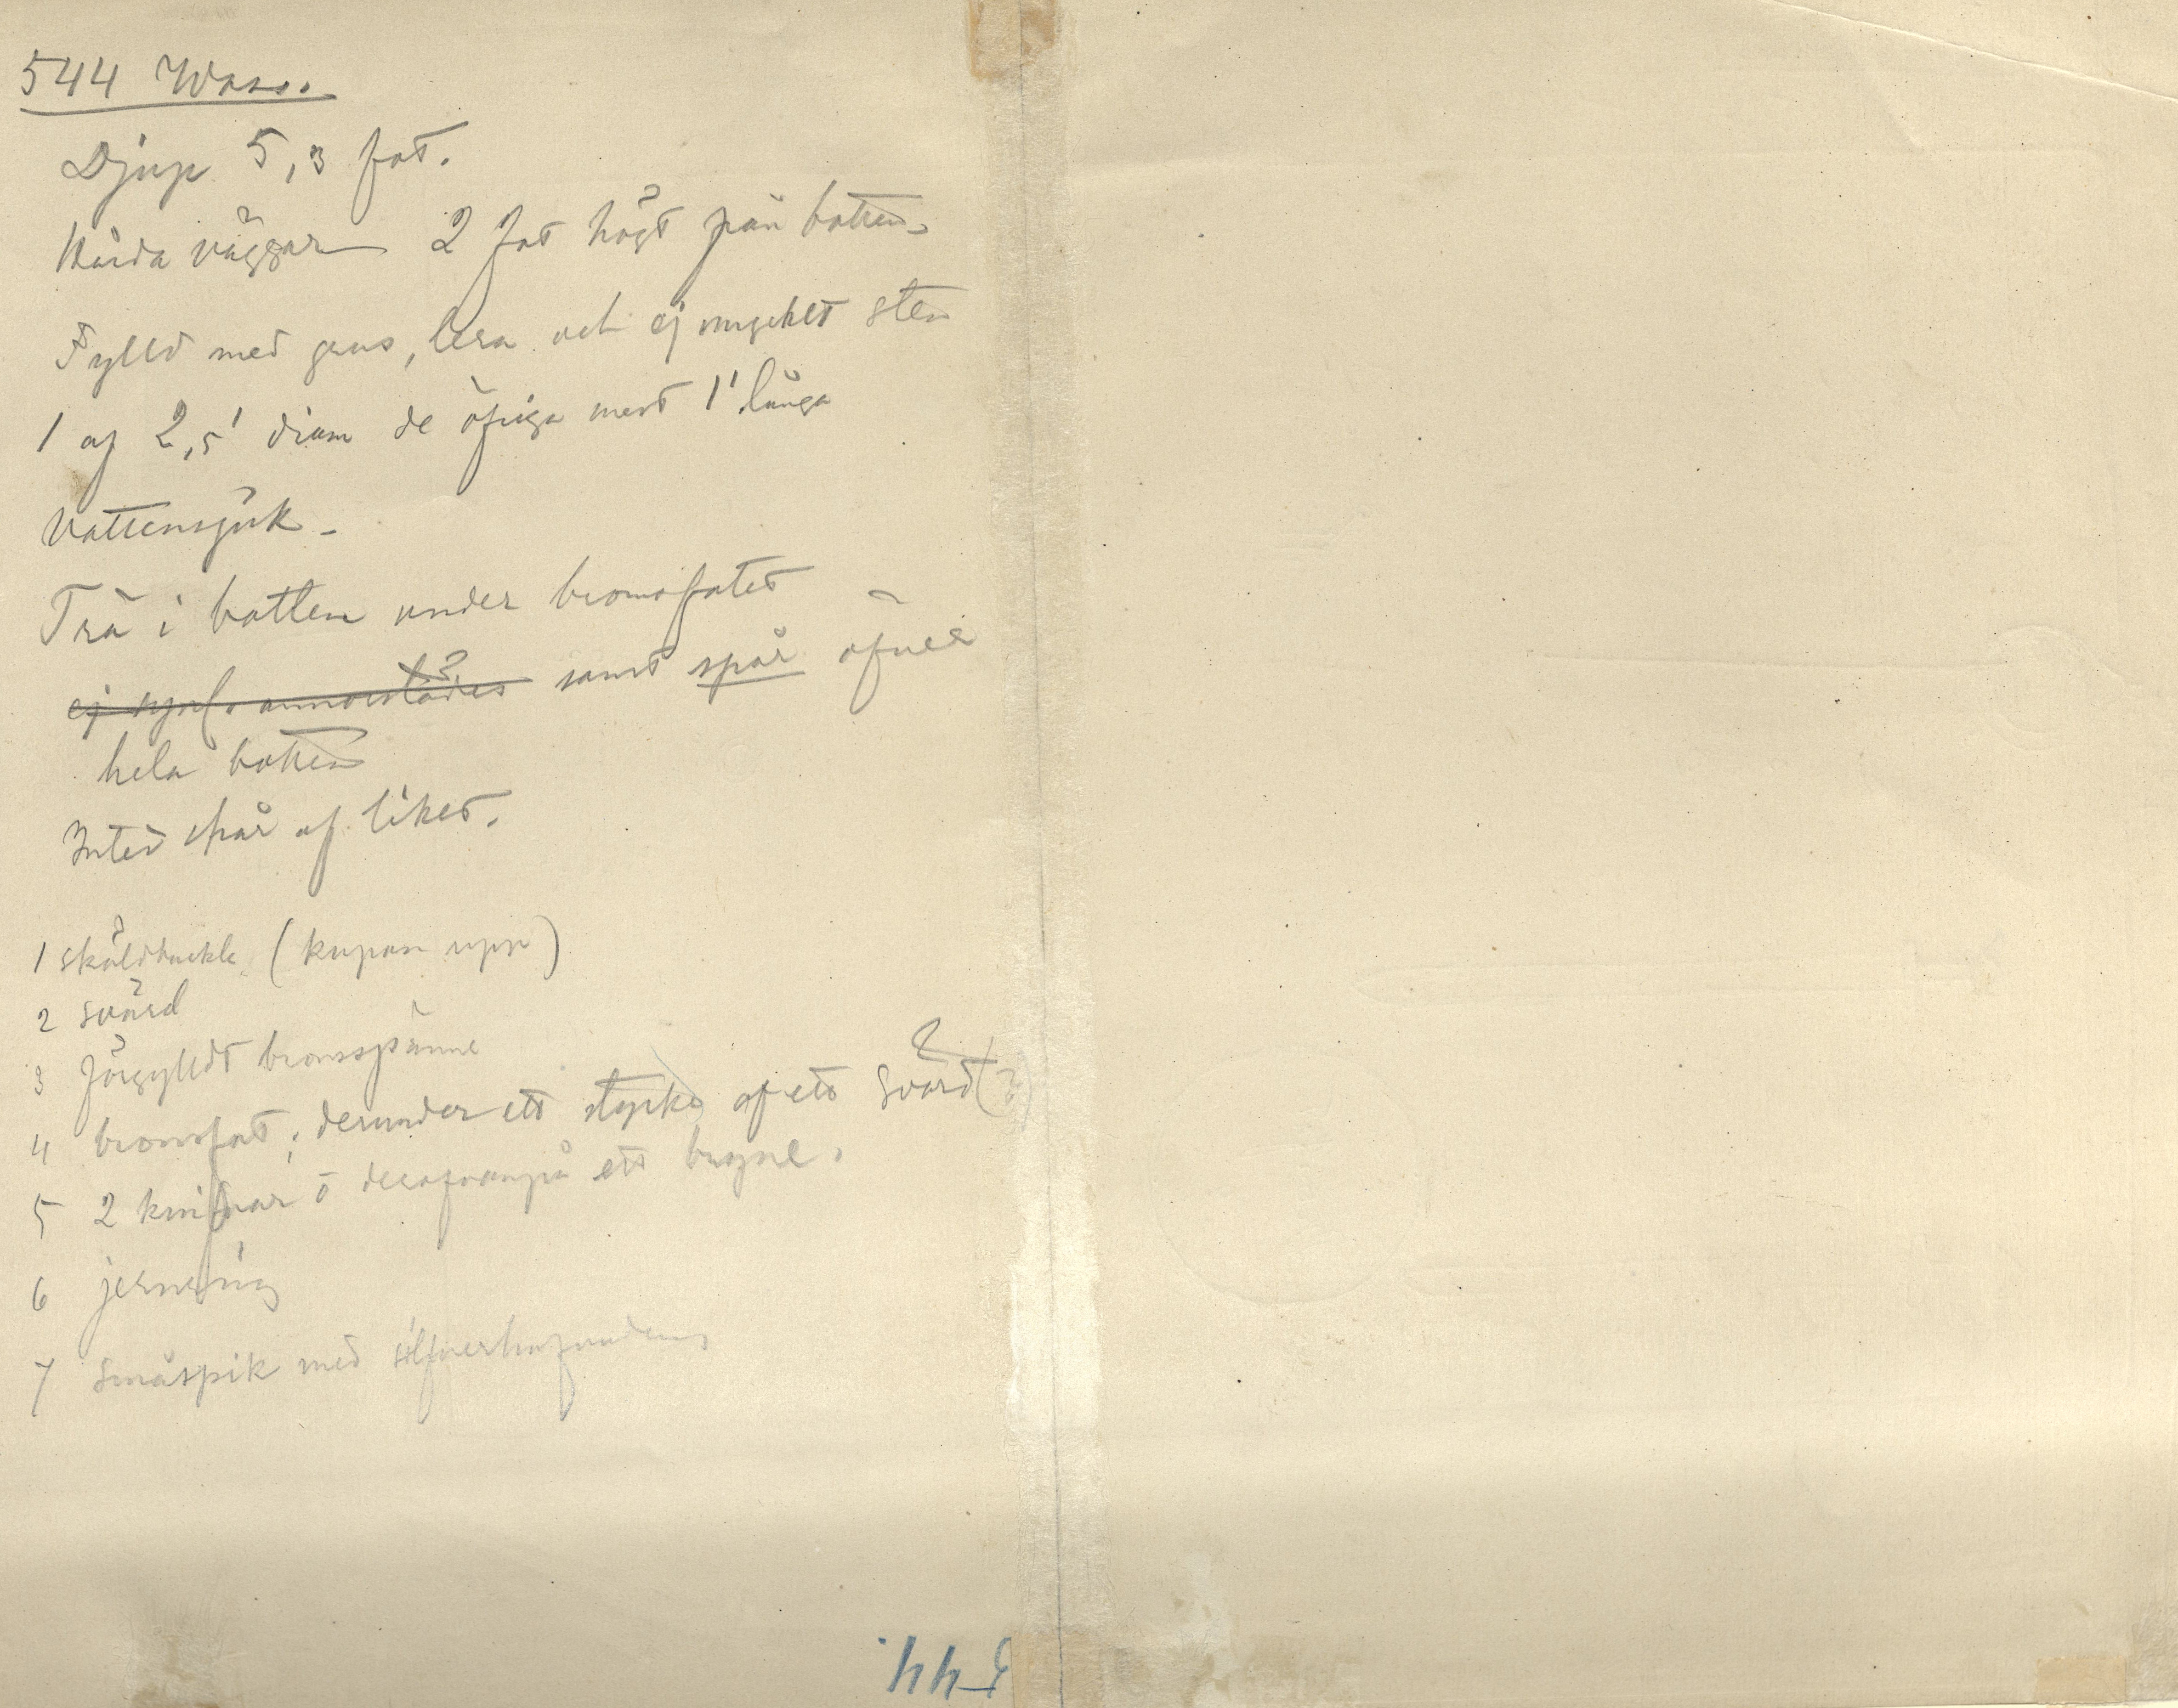 544
Djup 5,3 fot.
Hårda väggar 2 fot högt från botten
Fylld med grus, lera och ej mycket sten
1 af 2,5' diam de öfriga mest 1' långa
Vattensjuk -
Trä i botten under bronsfatet
ej synl. annorstädes samt spår öfver
hela botten
Intet spår af liket.
1 sköldbuckla (kupan upp)
2 svärd
3 förgylldt bronsspänne
4 bronsfat; derunder ett stycke af ett svärd (?)
5 2 knifvar o derofvanpå ett bryne.
6 jernring
7 Småspik med silfverhufvuden
544.